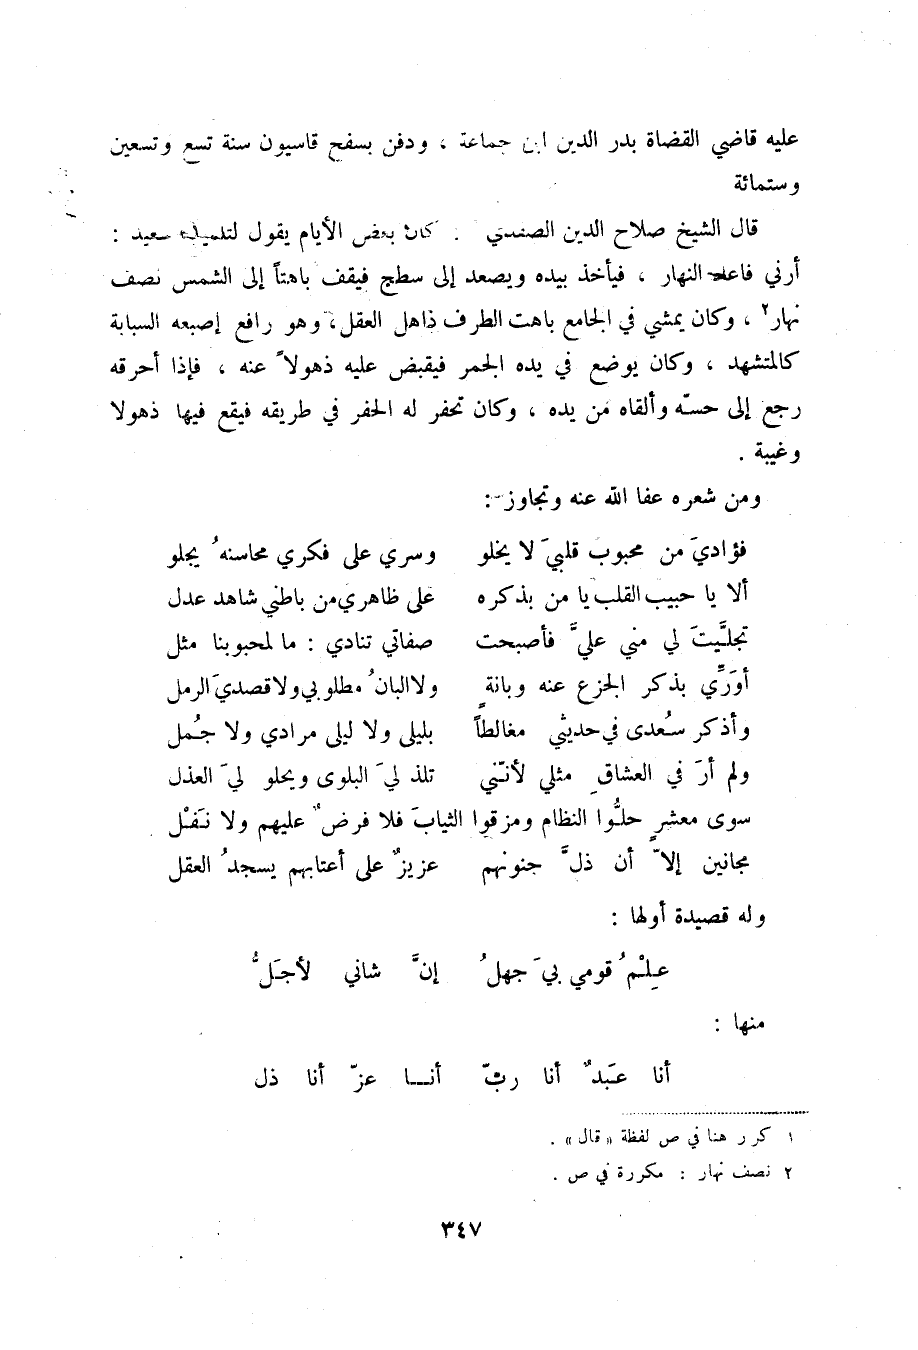 عليه قاضي القضاة بدر الدين ابن جماعة ، ودفن بسفح قاسيون سنة تسع وتسعين
وستمائة
قال الشيخ صلاح الدين الصفدي . كان بعض الأيام يقول لتلميذه سعيد :
أرني فاعل النهار ، فيأخذ بيده ويصعد إلى سطح فيقف باهتاً إلى الشمس نصف
نهار٢ ، وكان يمشي في الجامع باهت الطرف ذاهل العقل ، وهو رافع إصبعه السبابة
كالمتشهد ، وكان يوضع في يده الجمر فيقبض عليه ذهولاً عنه ، فإذا أحرقه
رجع إلى حسّه وألقاه من يده ، وكان تحفر له الحفر في طريقه فيقع فيها ذهولا
وغيبة .
ومن شعره عفا الله عنه وتجاوز :
فؤاديَ من محبوب قلبيَ لا يخلو وسري على فكري محاسنهُ يجلو
ألا يا حبيب القلب يا من بذكره على ظاهري من باطني شاهد عدل
تجلَّيتَ لي مني عليَّ فأصبحت صفاتي تنادي : ما لمحبوبنا مثل
أورِّي بذكر الجزع عنه وبانةٍ ولا البانُ مطلوبي ولا قصديَ الرمل
وأذكر سُعدى في حديثي مغالطاً بليلى ولا ليلى مرادي ولا جُمل
ولم أرَ في العشاقِ مثلي لأنّني تلذ ليَ البلوى ويحلو ليَ العذل
سوى معشرٍ حلُّوا النظام ومزقوا الثيابَ فلا فرضٌ عليهم ولا نَفْل
مجانين إلاّ أن ذلَّ جنونهم عزيزٌ على أعتابهم يسجدُ العقل
وله قصيدة أولها :
عِلْمُ قومي بيَ جهلُ إنَّ شاني لأجَلُّ
منها :
أنا عَبدٌ أنا ربّ أنـا عزّ أنا ذل
١ كرر هنا في ص لفظة « قال » .
٢ نصف نهار : مكررة في ص .
٣٤٧